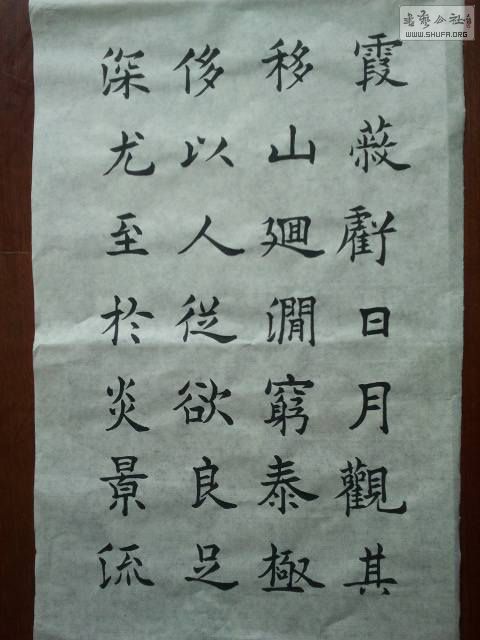 霞蔽虧日月觀其
移山廻澗窮泰極
侈以人從欲良足
深尤至於炎景流
书藝公社
WWW.SHUFA.ORG